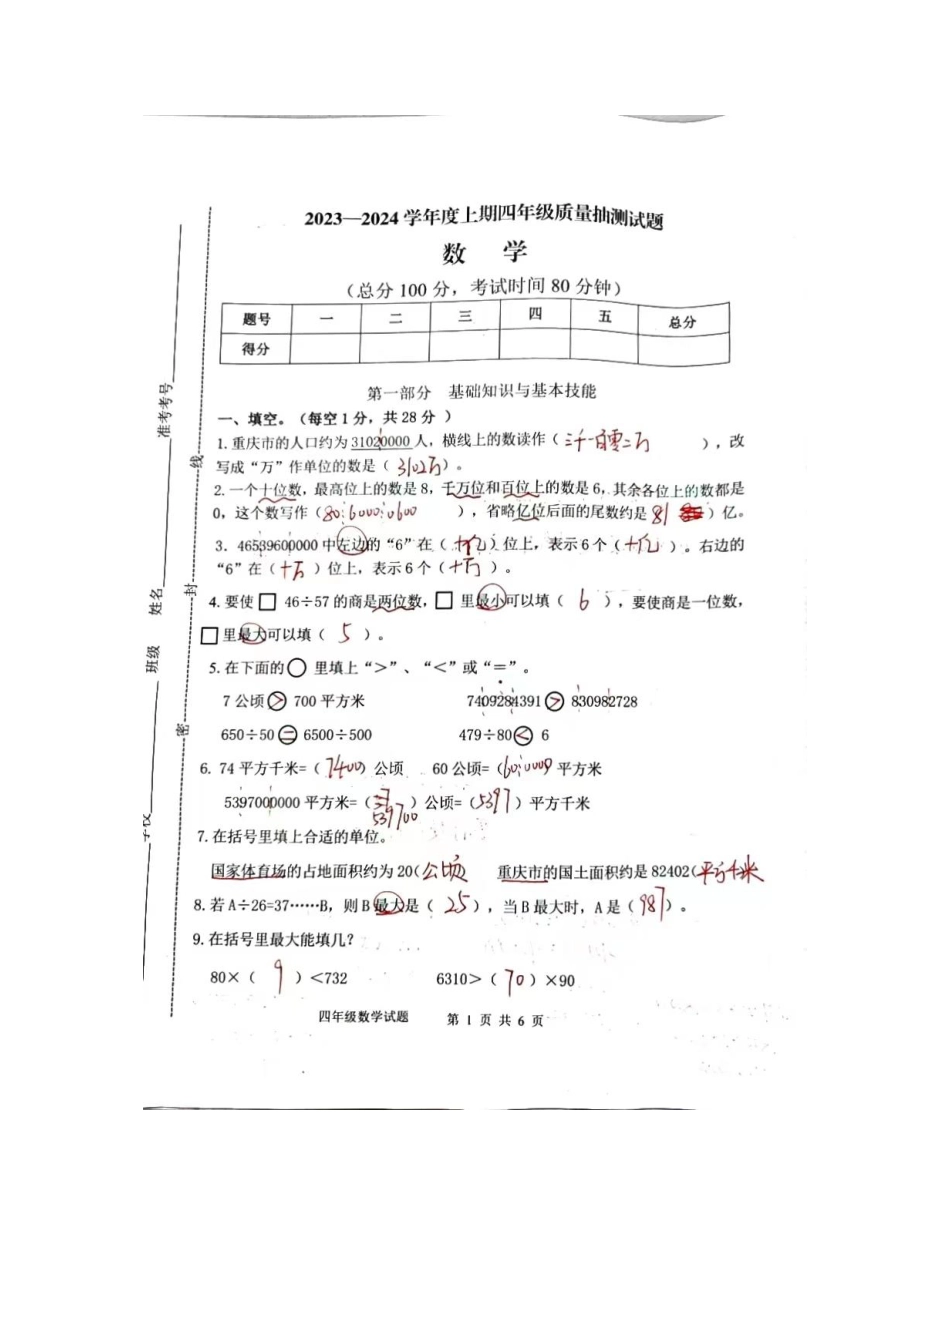 2023—2024学年度上期四年级质量抽测试题
数 学
（总分100分，考试时间80分钟）
题号 一 二 三 四 五 总分
得分
第一部分 基础知识与基本技能
一、填空。（每空1分，共28分）
1.重庆市的人口约为31020000人，横线上的数读作（三千一百零二万），改
写成“万”作单位的数是（3102万）。
2.一个十位数，最高位上的数是8，千万位和百位上的数是6，其余各位上的数都是
0，这个数写作（8060000600），省略亿位后面的尾数约是（81）亿。
3．46539600000中左边的“6”在（十亿）位上，表示6个（十亿）。右边的
“6”在（十万）位上，表示6个（十万）。
4.要使□46÷57的商是两位数，□里最小可以填（6），要使商是一位数，
□里最大可以填（5）。
5.在下面的○里填上“>”、“<”或“=”。
7公顷>700平方米 7409284391>830982728
650÷50=6500÷500 479÷80<6
6．74平方千米=（7400）公顷 60公顷=（600000）平方米
5397000000平方米=（539700）公顷=（5397）平方千米
7.在括号里填上合适的单位。
国家体育场的占地面积约为20（公顷 重庆市的国土面积约是82402（平方千米
8.若A÷26=37……B，则B最大是（25），当B最大时，A是（987）。
9.在括号里最大能填几？
80×（9）<732 6310>（70）×90
四年级数学试题 第1页共6页
准考考号
姓名
班级
密 封 线